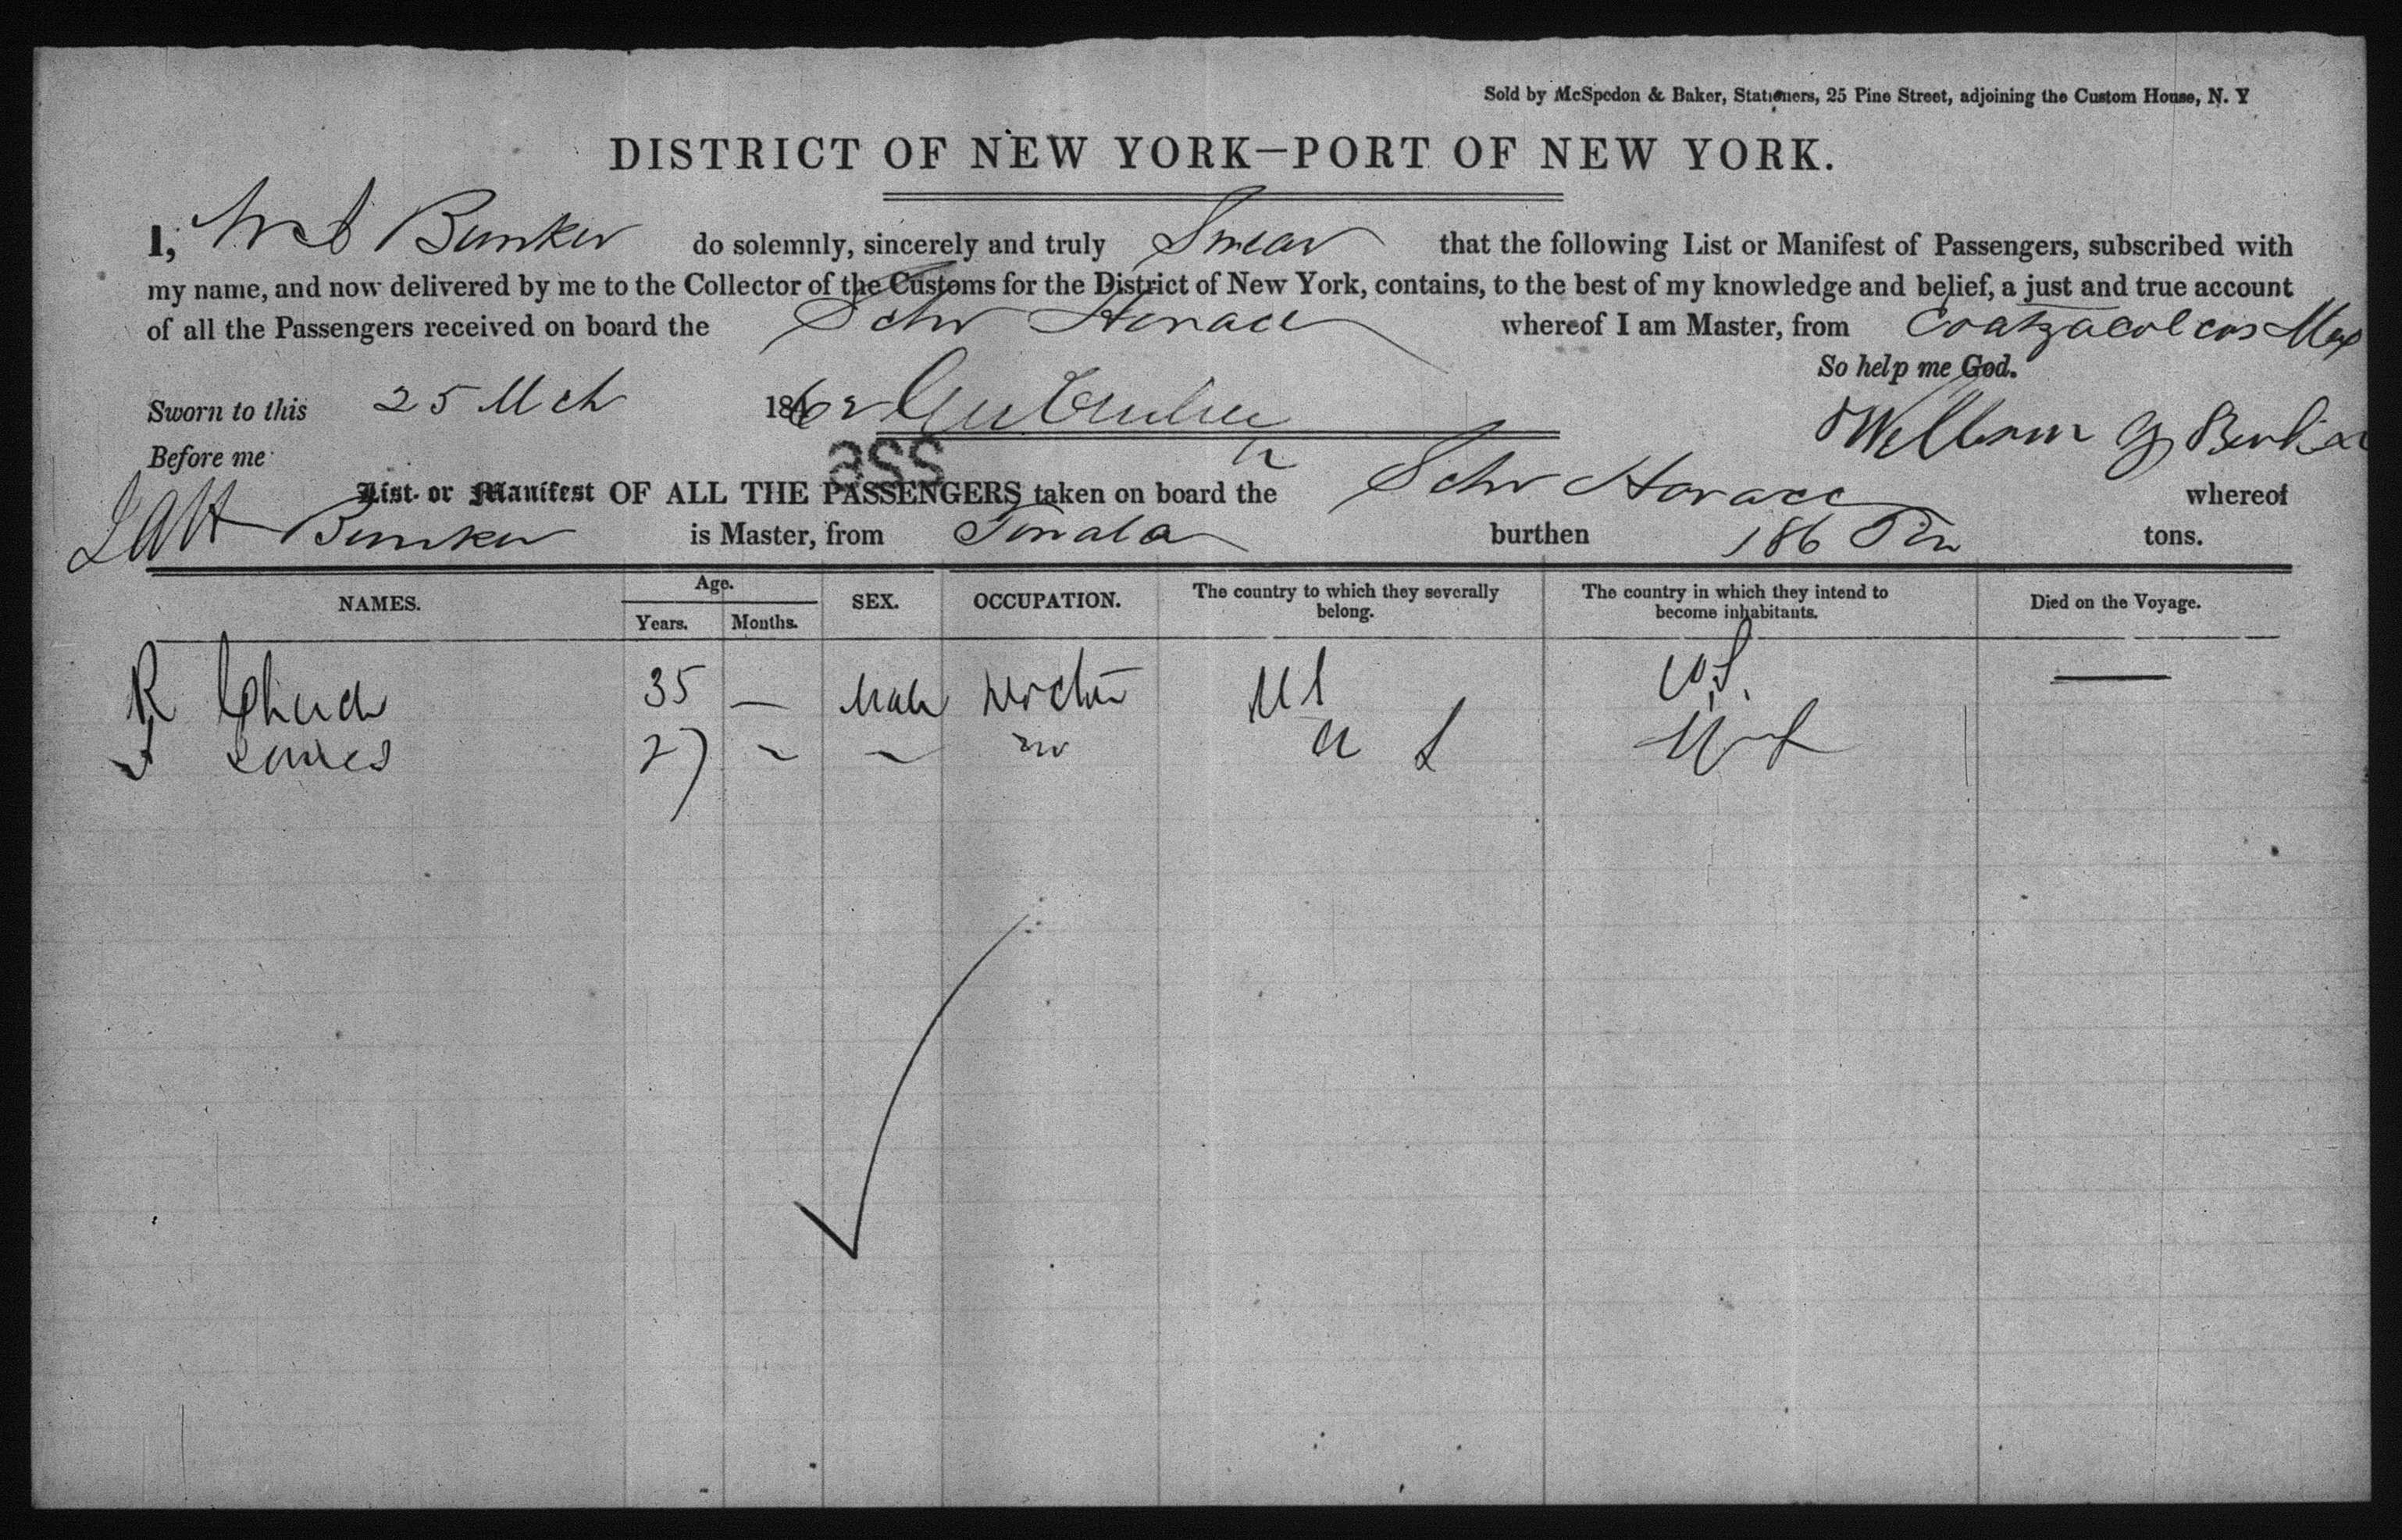 Sold by McSpedon & Baker, Stationers, 25 Pine Street, adjoining the Custom House, N. Y
DISTRICT OF NEW YORK—PORT OF NEW YORK.
I, Bunker do solemnly, sincerely and truly Swear that the following List or Manifest of Passengers, subscribed with
my name, and now delivered by me to the Collector of the Customs for the District of New York, contains, to the best of my knowledge and belief, a just and true account
of all the Passengers received on board the Schr Horace whereof I am Master, from Coatzacolcos Mex
So help me God.
Sworn to this 25 Mch 1862
Before me
List or Manifest OF ALL THE PASSENGERS taken on board the Schr Horace whereof
Bunker is Master, from Tonala burthen 186 tons.
NAMES. Age. Years. Months. SEX. OCCUPATION. The country to which they severally belong. The country in which they intend to become inhabitants. Died on the Voyage.
R 35 — Male U S U.S. —
27 U S